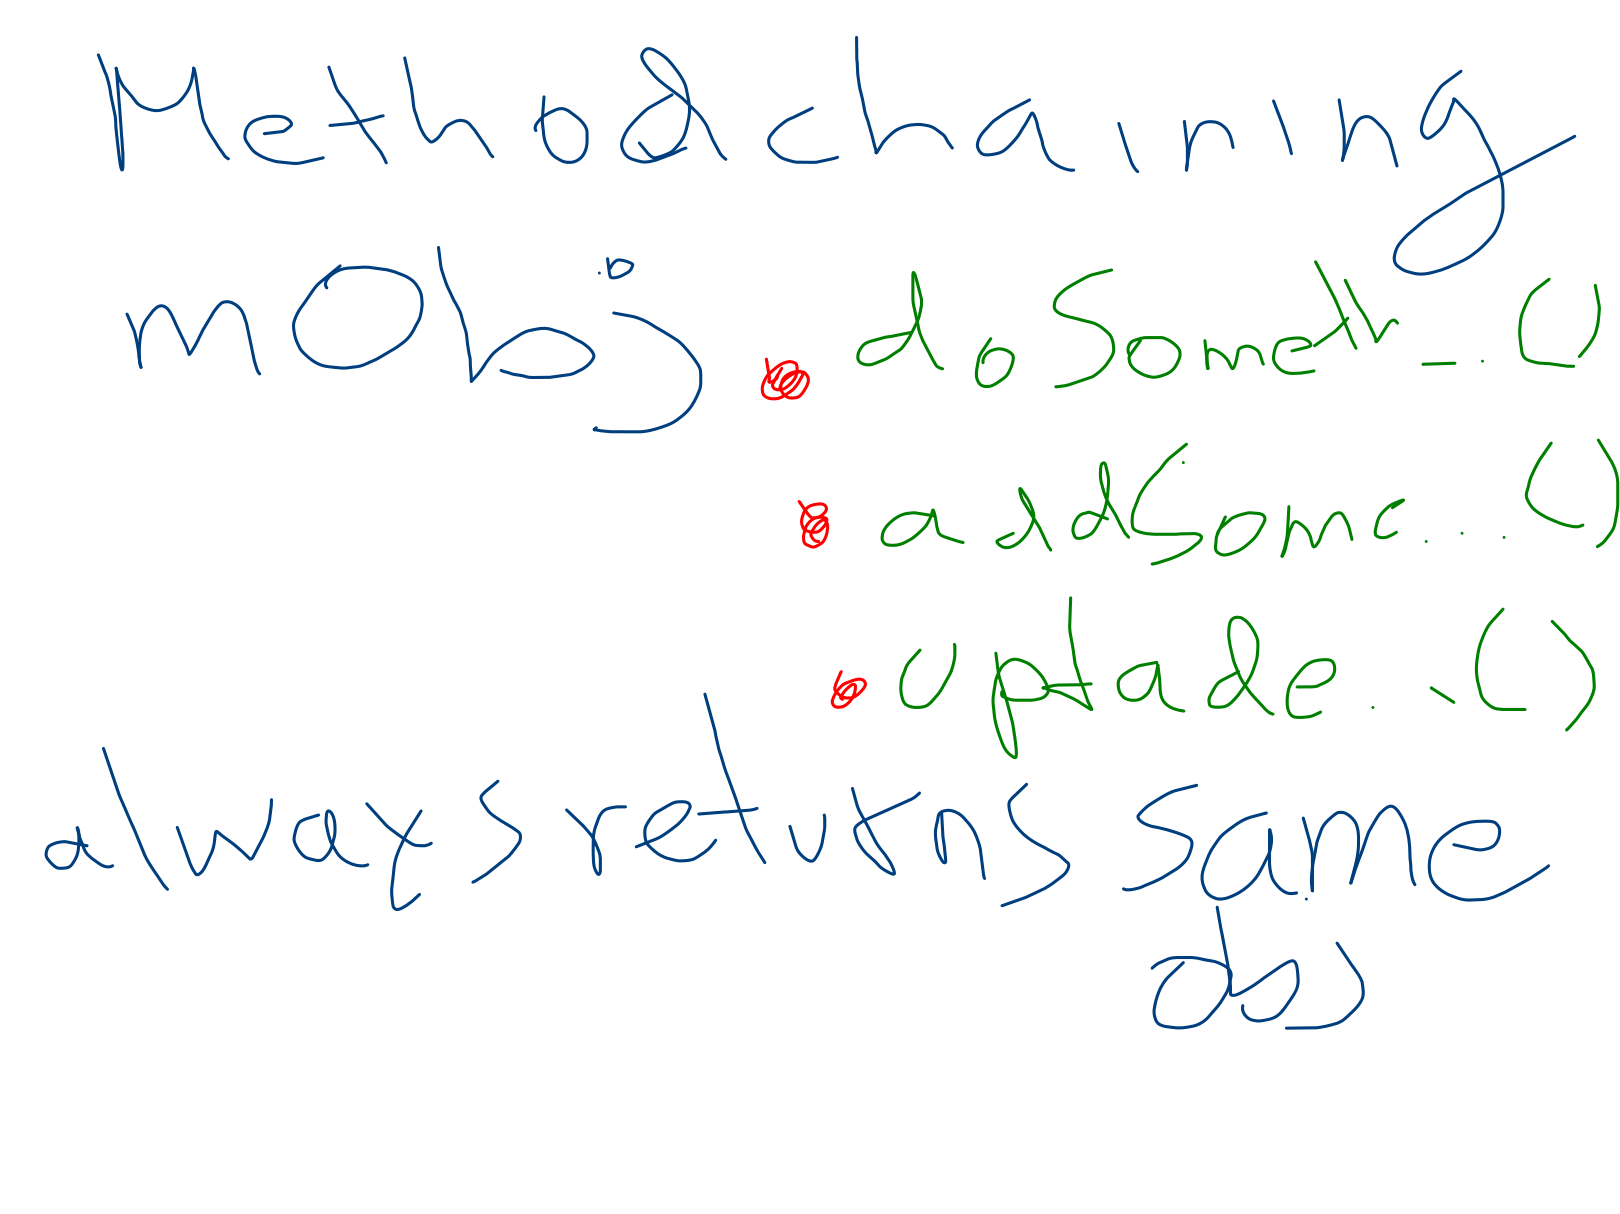 Method chaining
mObj.doSometh_.()
.addSome...()
.uptade..()
always returns same
obj